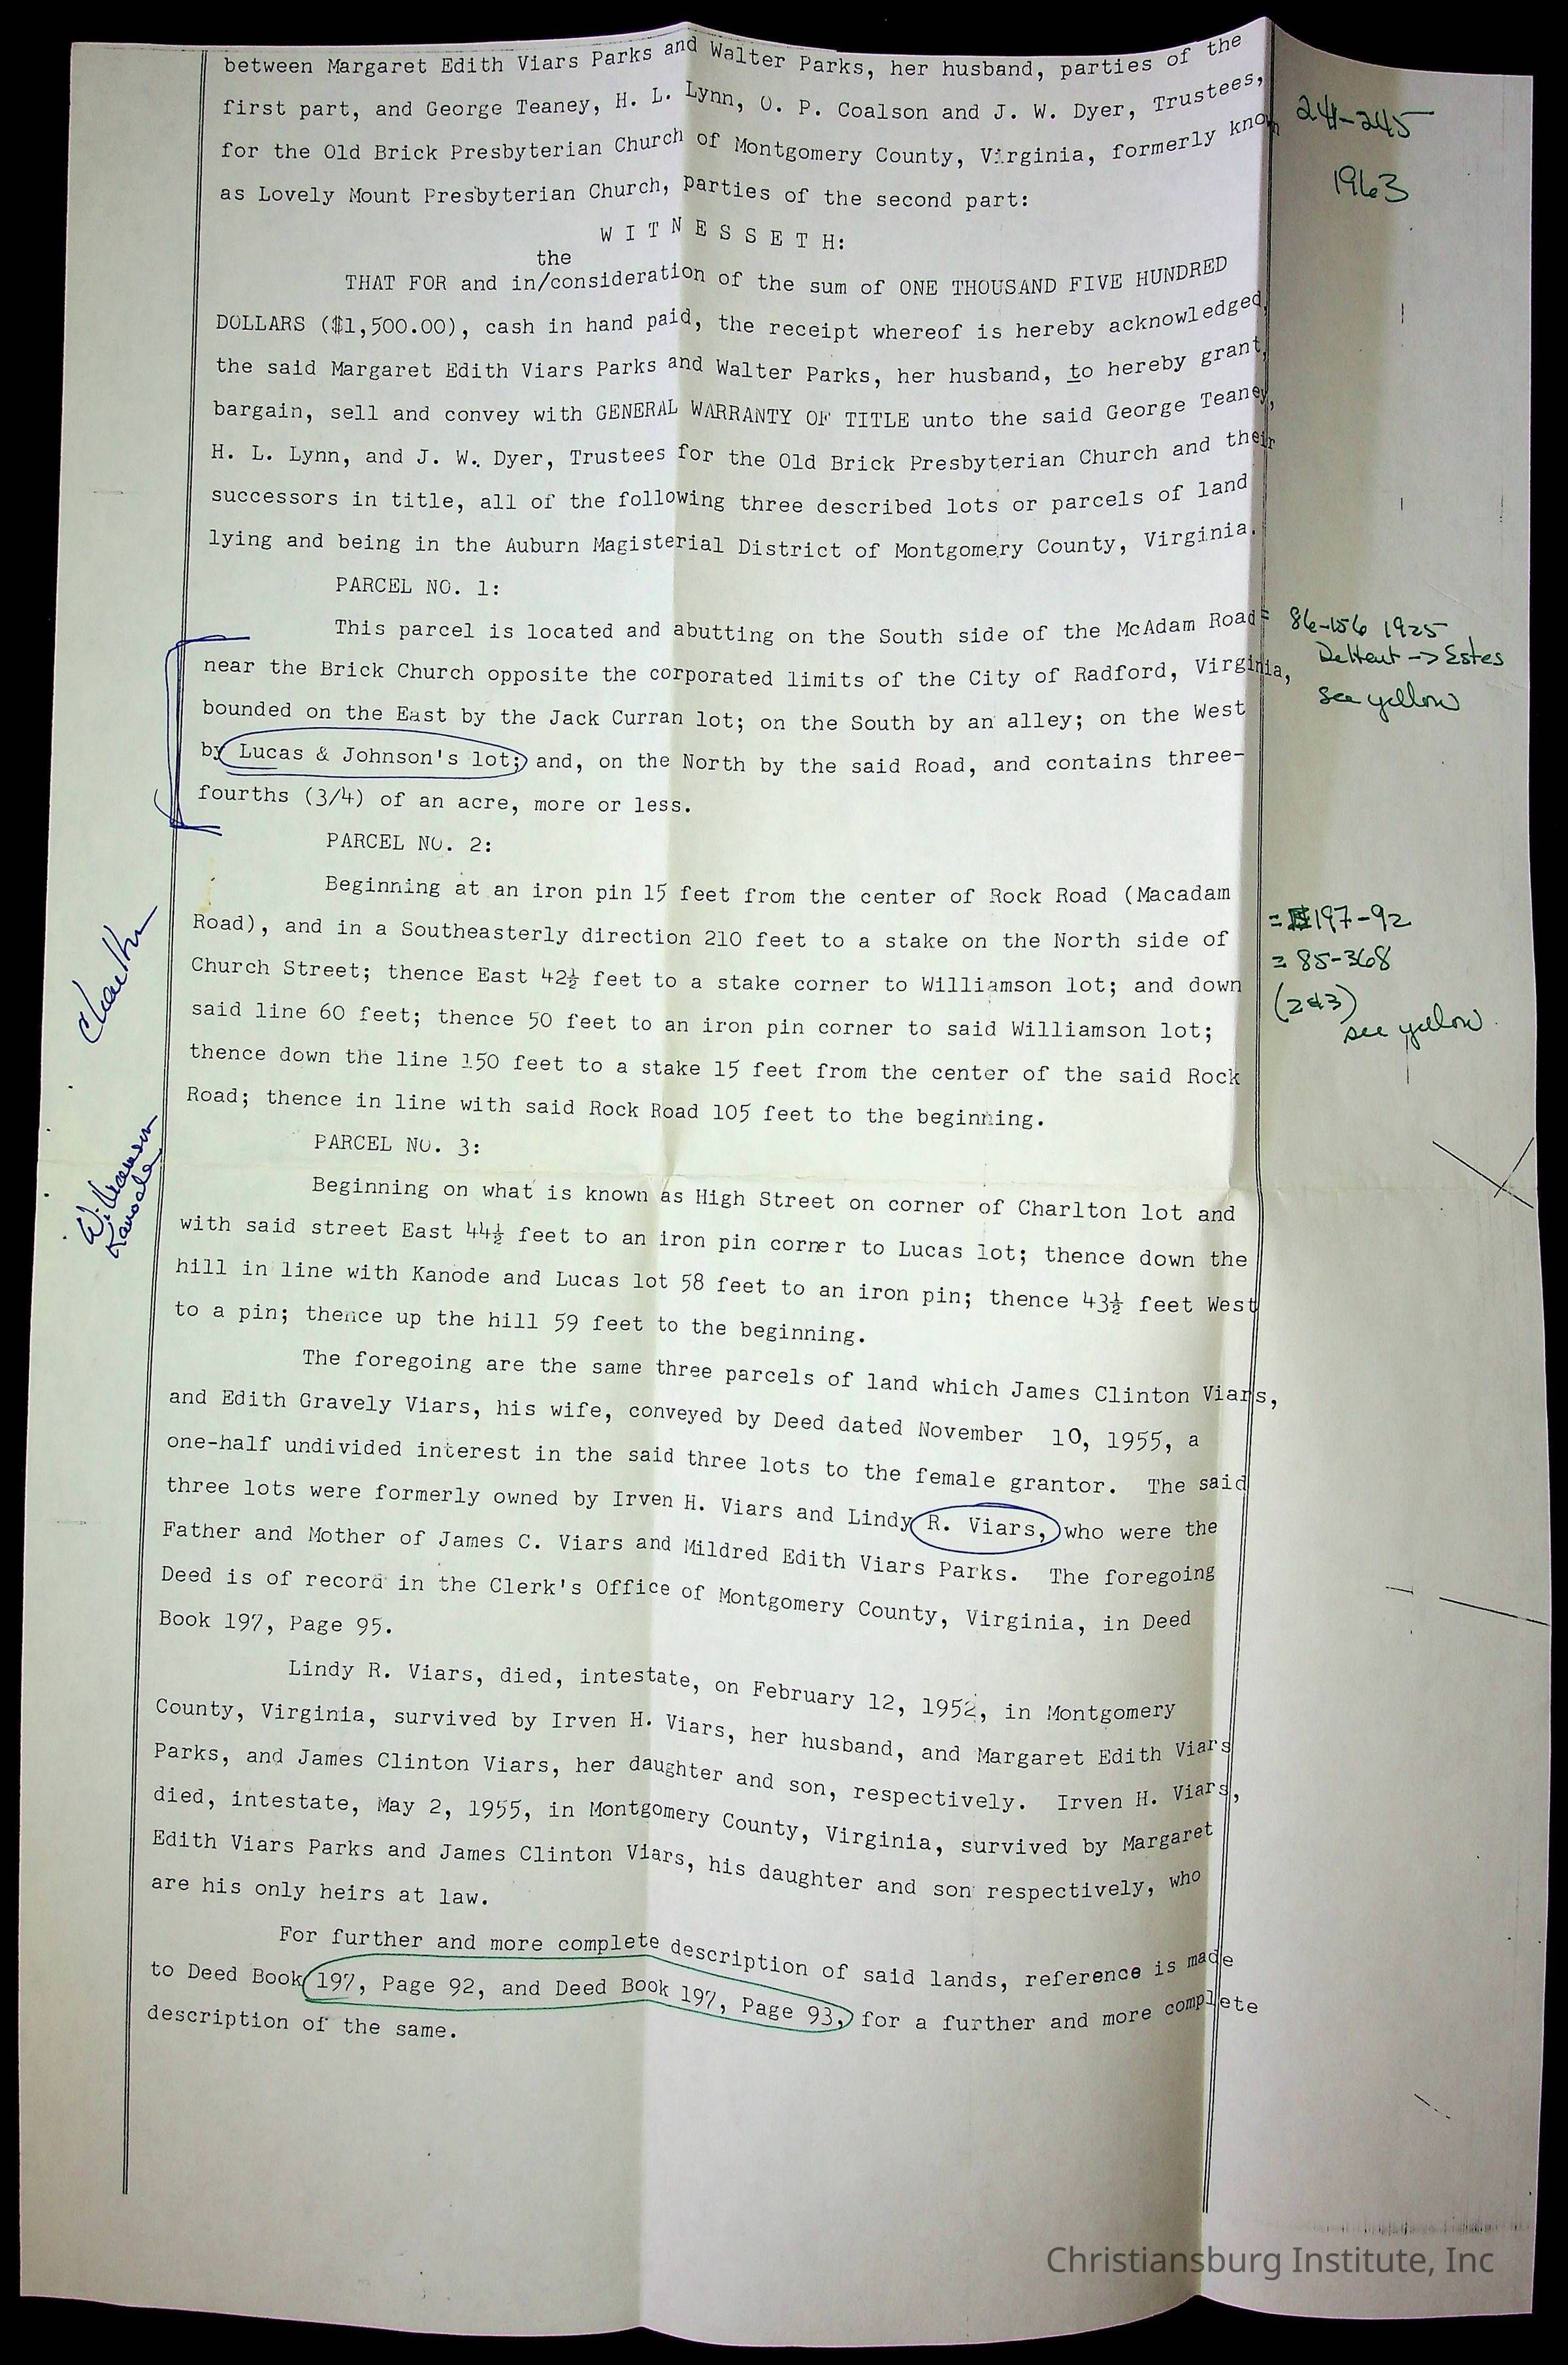 between Margaret Edith Viars Parks and Walter Parks, her husband, parties of the
first part, and George Teaney, H. L. Lynn, O. P. Coalson and J. W. Dyer, Trustees,
for the Old Brick Presbyterian Church of Montgomery County, Virginia, formerly known
as Lovely Mount Presbyterian Church, parties of the second part:
241-245
1963
W I T N E S S E T H:
the
THAT FOR and in/consideration of the sum of ONE THOUSAND FIVE HUNDRED
DOLLARS ($1,500.00), cash in hand paid, the receipt whereof is hereby acknowledged,
the said Margaret Edith Viars Parks and Walter Parks, her husband, to hereby grant,
bargain, sell and convey with GENERAL WARRANTY OF TITLE unto the said George Teaney,
H. L. Lynn, and J. W. Dyer, Trustees for the Old Brick Presbyterian Church and their
successors in title, all of the following three described lots or parcels of land
lying and being in the Auburn Magisterial District of Montgomery County, Virginia.
PARCEL NO. 1:
This parcel is located and abutting on the South side of the McAdam Road
near the Brick Church opposite the corporated limits of the City of Radford, Virginia,
bounded on the East by the Jack Curran lot; on the South by an alley; on the West
by Lucas & Johnson's lot; and, on the North by the said Road, and contains three-
fourths (3/4) of an acre, more or less.
= 86-156 1925
-> Estes
see yellow
PARCEL NO. 2:
Beginning at an iron pin 15 feet from the center of Rock Road (Macadam
Road), and in a Southeasterly direction 210 feet to a stake on the North side of
Church Street; thence East 42½ feet to a stake corner to Williamson lot; and down
said line 60 feet; thence 50 feet to an iron pin corner to said Williamson lot;
thence down the line 150 feet to a stake 15 feet from the center of the said Rock
Road; thence in line with said Rock Road 105 feet to the beginning.
= 197-92
= 85-368
(2&3)
see yellow
Charlton
PARCEL NO. 3:
Beginning on what is known as High Street on corner of Charlton lot and
with said street East 44½ feet to an iron pin corner to Lucas lot; thence down the
hill in line with Kanode and Lucas lot 58 feet to an iron pin; thence 43½ feet West
to a pin; thence up the hill 59 feet to the beginning.
Williamson
Kanode
The foregoing are the same three parcels of land which James Clinton Viars,
and Edith Gravely Viars, his wife, conveyed by Deed dated November 10, 1955, a
one-half undivided interest in the said three lots to the female grantor. The said
three lots were formerly owned by Irven H. Viars and Lindy R. Viars, who were the
Father and Mother of James C. Viars and Mildred Edith Viars Parks. The foregoing
Deed is of record in the Clerk's Office of Montgomery County, Virginia, in Deed
Book 197, Page 95.
Lindy R. Viars, died, intestate, on February 12, 1952, in Montgomery
County, Virginia, survived by Irven H. Viars, her husband, and Margaret Edith Viars
Parks, and James Clinton Viars, her daughter and son, respectively. Irven H. Viars,
died, intestate, May 2, 1955, in Montgomery County, Virginia, survived by Margaret
Edith Viars Parks and James Clinton Viars, his daughter and son respectively, who
are his only heirs at law.
For further and more complete description of said lands, reference is made
to Deed Book 197, Page 92, and Deed Book 197, Page 93, for a further and more complete
description of the same.
Christiansburg Institute, Inc